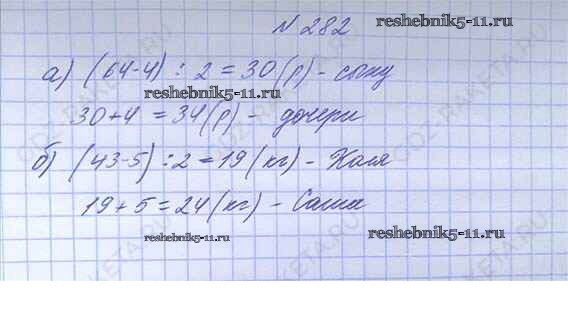 № 282
reshebnik5-11.ru
а) (64-4) : 2 = 30 (р) - сыну
reshebnik5-11.ru
30+4 = 34 (р) - дочери
б) (43-5) : 2 = 19 (кг) - Коля
19 + 5 = 24 (кг) - Саша
reshebnik5-11.ru
reshebnik5-11.ru